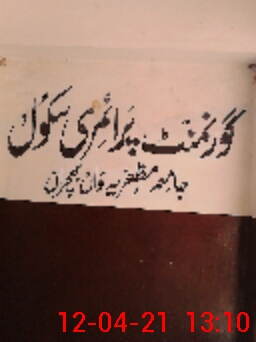 گورنمنٹ پرائمری سکول
جامعہ مظفریہ واں بھچراں
12-04-21 13:10